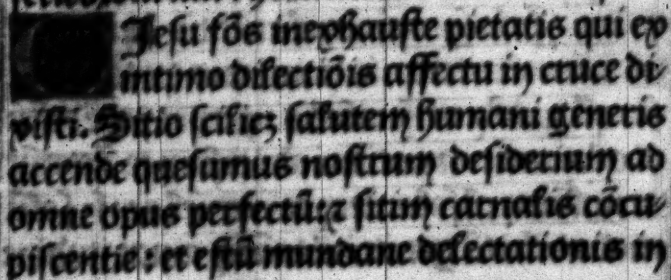 O Jesu fōs inexhauste pietatis qui ex
intimo dilectiōis affectu in cruce di
xisti. Sitio scilicꝫ salutem humani generis
accende quesumus nostrum desiderium ad
omne opus perfectū: ⁊ sitim carnalis cōcu
piscentie: et estū mundane delectationis in